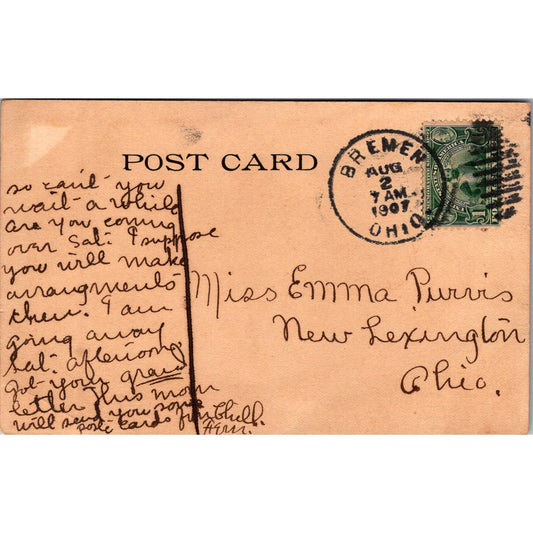 POST CARD
BREMEN
AUG
2
7 AM
1907
OHIO
so can't you
wait a while
are you coming
over Sat. I suppose
you will make
arrangments
then. I am
going away
Sat. afternoon,
got your grand
letter this morn
will send you some
post cards from
Miss Emma Purvis
New Lexington
Ohio.